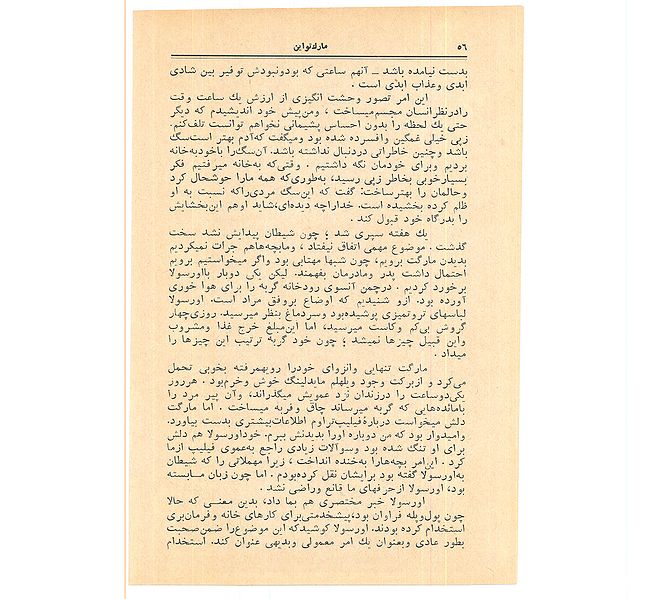 ۵۶
مارك تواین
بدست نیامده باشد ــ آنهم ساعتی که بودونبودش توفیر بین شادی
ابدی وعذاب ابدی است .
این امر تصور وحشت انگیزی از ارزش یك ساعت وقت
رادرنظرانسان مجسم‌میساخت ، ومن‌پیش خود اندیشیدم که دیگر
حتی یك لحظه را بدون احساس پشیمانی نخواهم توانست تلف‌کنم.
زپی خیلی غمگین وافسرده شده بود ومیگفت که‌آدم بهتر است‌سگ
باشد وچنین خاطراتی دردنبال نداشته باشد. آن‌سگ‌را باخودبه‌خانه
بردیم وبرای خودمان نگه داشتیم . وقتی‌که به‌خانه میرفتیم فکر
بسیارخوبی بخاطر زپی رسید، به‌طوری‌که همه مارا خوشحال کرد
وحالمان را بهترساخت: گفت که این‌سگ مردی‌راکه نسبت به او
ظلم کرده بخشیده است. خداراچه دیده‌ای،شاید اوهم این‌بخشایش
را بدرگاه خود قبول کند .
یك هفته سپری شد ؛ چون شیطان پیدایش نشد سخت
گذشت . موضوع مهمی اتفاق نیفتاد ، ومابچه‌هاهم جرات نمیکردیم
بدیدن مارگت برویم، چون شبها مهتابی بود واگر میخواستیم برویم
احتمال داشت پدر ومادرمان بفهمند. لیکن یکی دوبار بااورسولا
برخورد کردیم . درچمن آنسوی رودخانه گربه را برای هوا خوری
آورده بود. ازو شنیدیم که اوضاع بروفق مراد است. اورسولا
لباسهای تروتمیزی پوشیده‌بود وسردماغ بنظر میرسید. روزی‌چهار
گروش بی‌کم وکاست میرسید، اما این‌مبلغ خرج غذا ومشروب
واین قبیل چیزها نمیشد ؛ چون خود گربه ترتیب این چیزها را
میداد .
مارگت تنهایی وانزوای خودرا رویهمرفته بخوبی تحمل
می‌کرد و ازبرکت وجود ویلهلم مایدلینگ خوش وخرم‌بود . هرروز
یکی‌دوساعت را درزندان نزد عمویش میگذراند، وآن پیر مرد را
بامائده‌هایی که گربه میرساند چاق وفربه میساخت . اما مارگت
دلش میخواست دربارهٔ‌فیلیپ‌تراوم اطلاعات‌بیشتری بدست بیاورد.
وامیدوار بود که من دوباره اورا بدیدنش ببرم. خوداورسولا هم دلش
برای او تنگ شده بود وسوآلات زیادی راجع به‌عموی فیلیپ ازما
کرد . این‌امر بچه‌هارا به‌خنده انداخت ، زیرا مهملاتی را که شیطان
به‌اورسولا گفته بود برایشان نقل کرده‌بودم . اما چون زبان مابسته
بود، اورسولا ازحرفهای ما قانع وراضی نشد .
اورسولا خبر مختصری هم بما داد، بدین معنی که حالا
چون پول‌وپله فراوان بود،پیشخدمتی‌برای کارهای خانه و فرمان‌بری
استخدام کرده بودند. اورسولا کوشیدکه این موضوع‌را ضمن‌صحبت
بطور عادی وبعنوان یك امر معمولی وبدیهی عنوان کند. استخدام